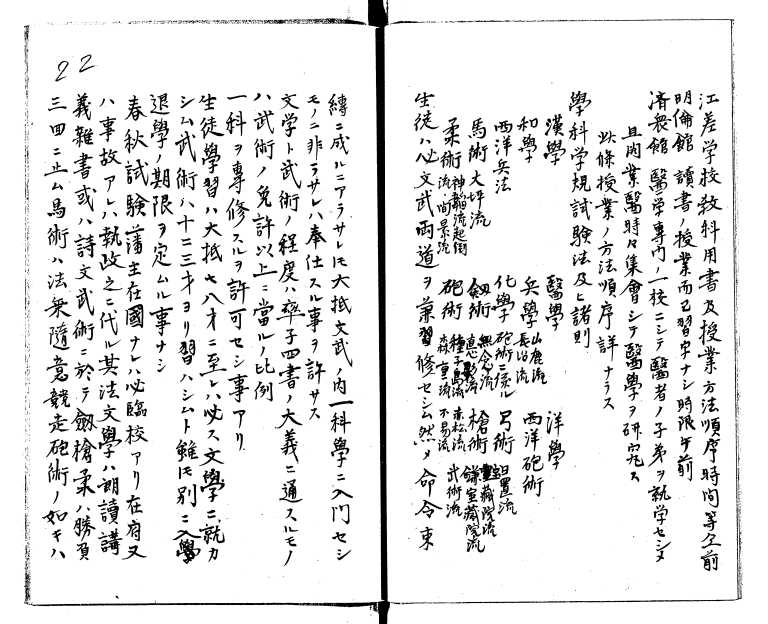 江差学校教科用書及授業方法順序時間等仝前
明倫館 讀書ノ授業而已習字ナシ時限午前
済衆館 醫学専門ノ一校ニシテ醫者ノ子弟ヲ就学セシメ
且開業醫時々集會シテ醫學ヲ研究ス
此條授業ノ方法順序詳ナラス
學科学規試驗法及ヒ諸則
漢學 醫學 洋學
和學 兵學 山鹿流 長沼流 西洋砲術
西洋兵法 化學 砲術ニ係ル 弓術 日置流
馬術大坪流 劔術 無念流 直心影流 槍術 寶藏院流 鎌宝藏院流
柔術 神韜流起倒流ノ間景流 砲術 種子島流赤松流 森重流不易流 武術流
生徒ハ必文武両道ヲ兼習修セシム然メ命令束
縛ニ成ルニアラサレモ大抵文武ノ内一科學ニ入門セシ
モノニ非ラサレハ奉仕スル事ヲ許サス
文学ト武術ノ程度ハ率子四書ノ大義ニ通スルモノ
ハ武術ノ免許以上ニ當ルノ比例
一科ヲ専修スルヲ許可セシ事アリ
生徒學習ハ大抵七八才ニ至レハ必ス文學ニ就カ
シム武術ハ十二三才ヨリ習ハシムト雖モ別ニ入學
退學ノ期限ヲ定ムル事ナシ
春秋試験藩主在國ナレハ必臨校アリ在府又
ハ事故アレハ執政之ニ代ル其法文學ハ朗讀講
義雜書或ハ詩文武術ニ於テ劔槍柔ハ勝負
三四ニ止ム馬術ハ法衆隨意競走砲術ノ如キハ
22